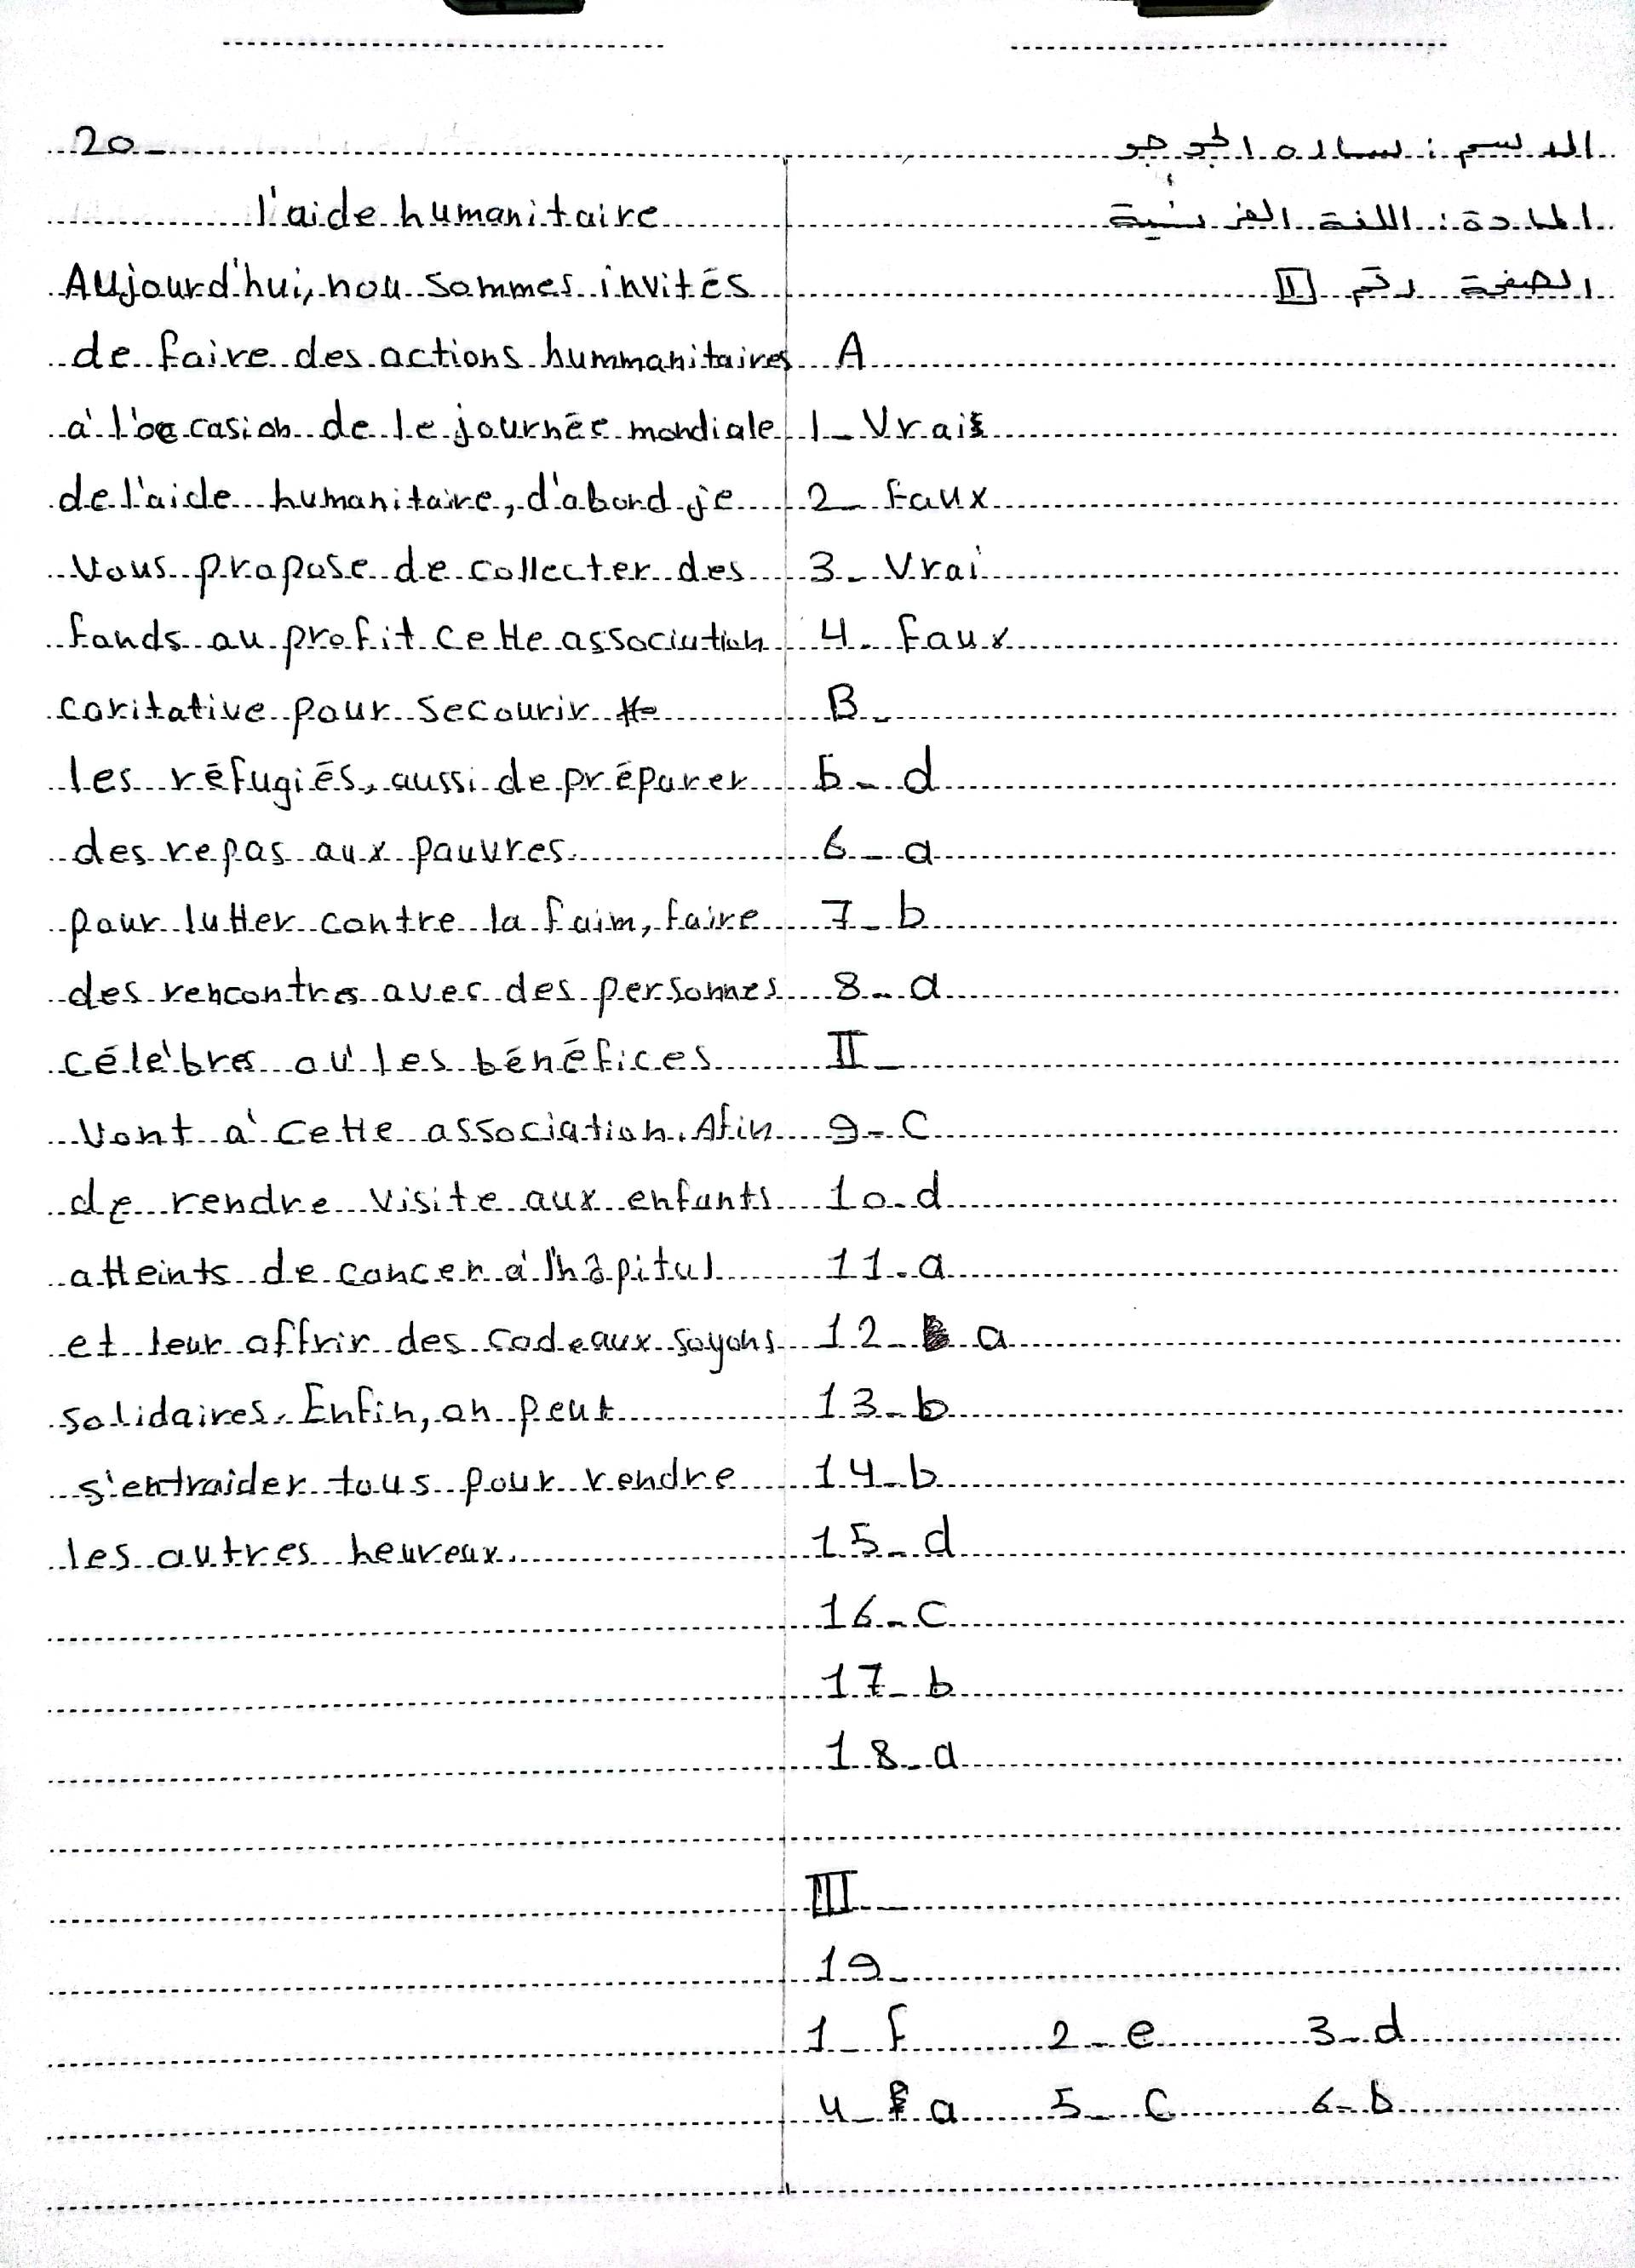 الاسم : ساره الجوجو
المادة : اللغة الفرنسية
الصفحة رقم 1
A
1_ Vrai
2_ Faux
3_ Vrai
4_ Faux
B_
5_ d
6_ a
7_ b
8_ a
II_
9_ c
10_ d
11_ a
12_ a
13_ b
14_ b
15_ d
16_ c
17_ b
18_ a
III_
19_
1_ f 2_ e 3_ d
4_ a 5_ c 6_ b
20_
l'aide humanitaire
Aujourd'hui, nou sommes invités
de faire des actions hummanitaires
à l'occasion de le journée mondiale
de l'aide humanitaire, d'abord je
vous propose de collecter des
fonds au profit cette association
caritative pour secourir
les réfugiés, aussi de préparer
des repas aux pauvres.
pour lutter contre la faim, faire
des rencontres avec des personnes
célèbres où les bénéfices
vont à cette association. Afin
de rendre visite aux enfants
atteints de cancer à l'hôpital
et leur offrir des cadeaux soyons
solidaires. Enfin, on peut
s'entraider tous pour rendre
les autres heureux.